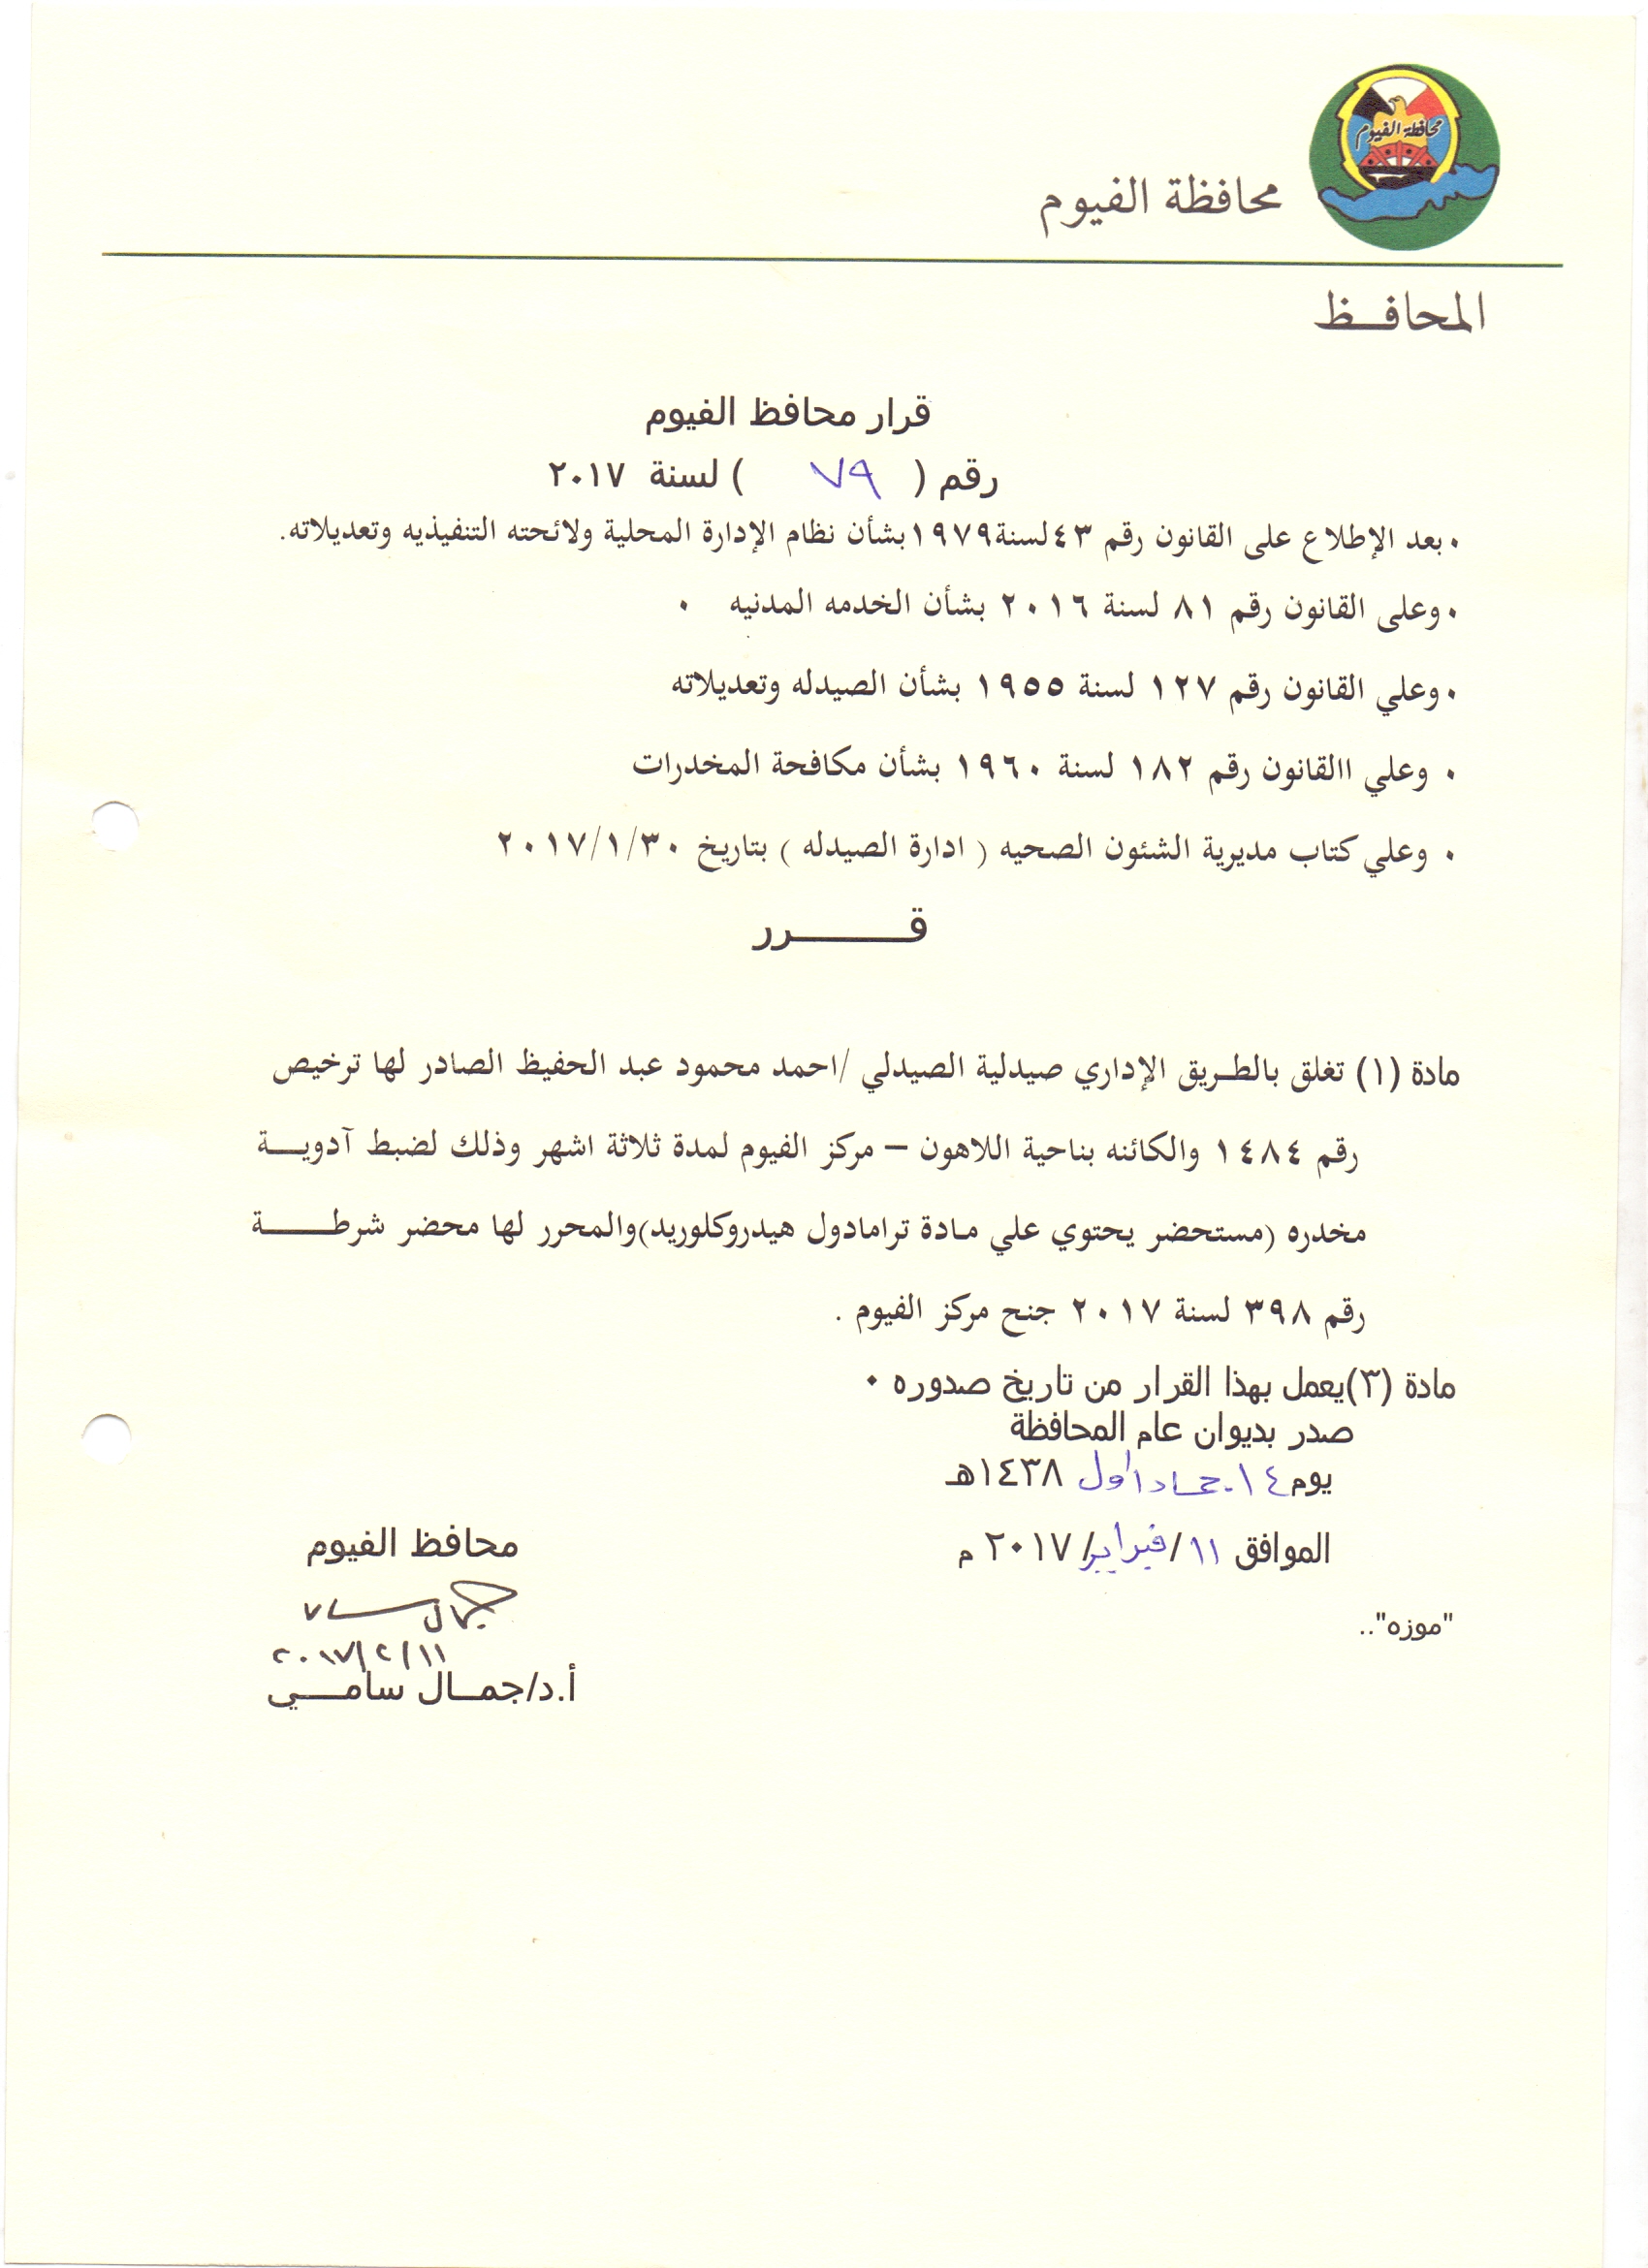 محافظة الفيوم
محافظة الفيوم
المحافـــظ
قرار محافظ الفيوم
رقم ( ٧٩ ) لسنة ٢٠١٧
٠ بعد الإطلاع على القانون رقم ٤٣ لسنة ١٩٧٩ بشأن نظام الإدارة المحلية ولائحته التنفيذيه وتعديلاته.
٠ وعلى القانون رقم ٨١ لسنة ٢٠١٦ بشأن الخدمه المدنيه ٠
٠ وعلي القانون رقم ١٢٧ لسنة ١٩٥٥ بشأن الصيدله وتعديلاته
٠ وعلي االقانون رقم ١٨٢ لسنة ١٩٦٠ بشأن مكافحة المخدرات
٠ وعلي كتاب مديرية الشئون الصحيه ( ادارة الصيدله ) بتاريخ ٢٠١٧/١/٣٠
قــــــــرر
مادة (١) تغلق بالطريق الإداري صيدلية الصيدلي /احمد محمود عبد الحفيظ الصادر لها ترخيص
رقم ١٤٨٤ والكائنه بناحية اللاهون – مركز الفيوم لمدة ثلاثة اشهر وذلك لضبط آدويـــة
مخدره (مستحضر يحتوي علي مادة ترامادول هيدروكلوريد)والمحرر لها محضر شرطــــــة
رقم ٣٩٨ لسنة ٢٠١٧ جنح مركز الفيوم .
مادة (٣)يعمل بهذا القرار من تاريخ صدوره ٠
صدر بديوان عام المحافظة
يوم ١٤ جماد اول ١٤٣٨هـ
الموافق ١١ /فبراير/ ٢٠١٧ م
محافظ الفيوم
جمال سامي
٢٠١٧/٢/١١
أ.د/جمــال سامـــــي
"موزه"..